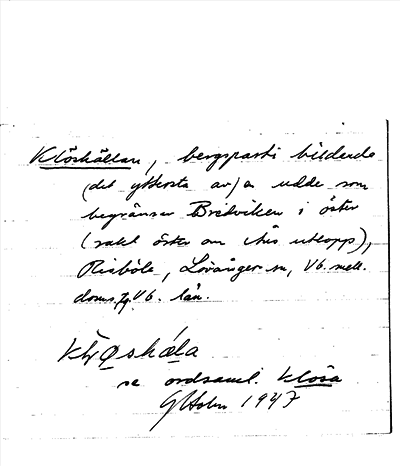 Klöshällan, bergsparti bildande
(det yttersta av) en udde som
begränsar Bredviken i öster
(rakt öster om Åis utlopp),
Risböle, Lövånger sn, Vb. mell.
doms., Vb. län.
se ordsaml. Klösa
GHolm 1947